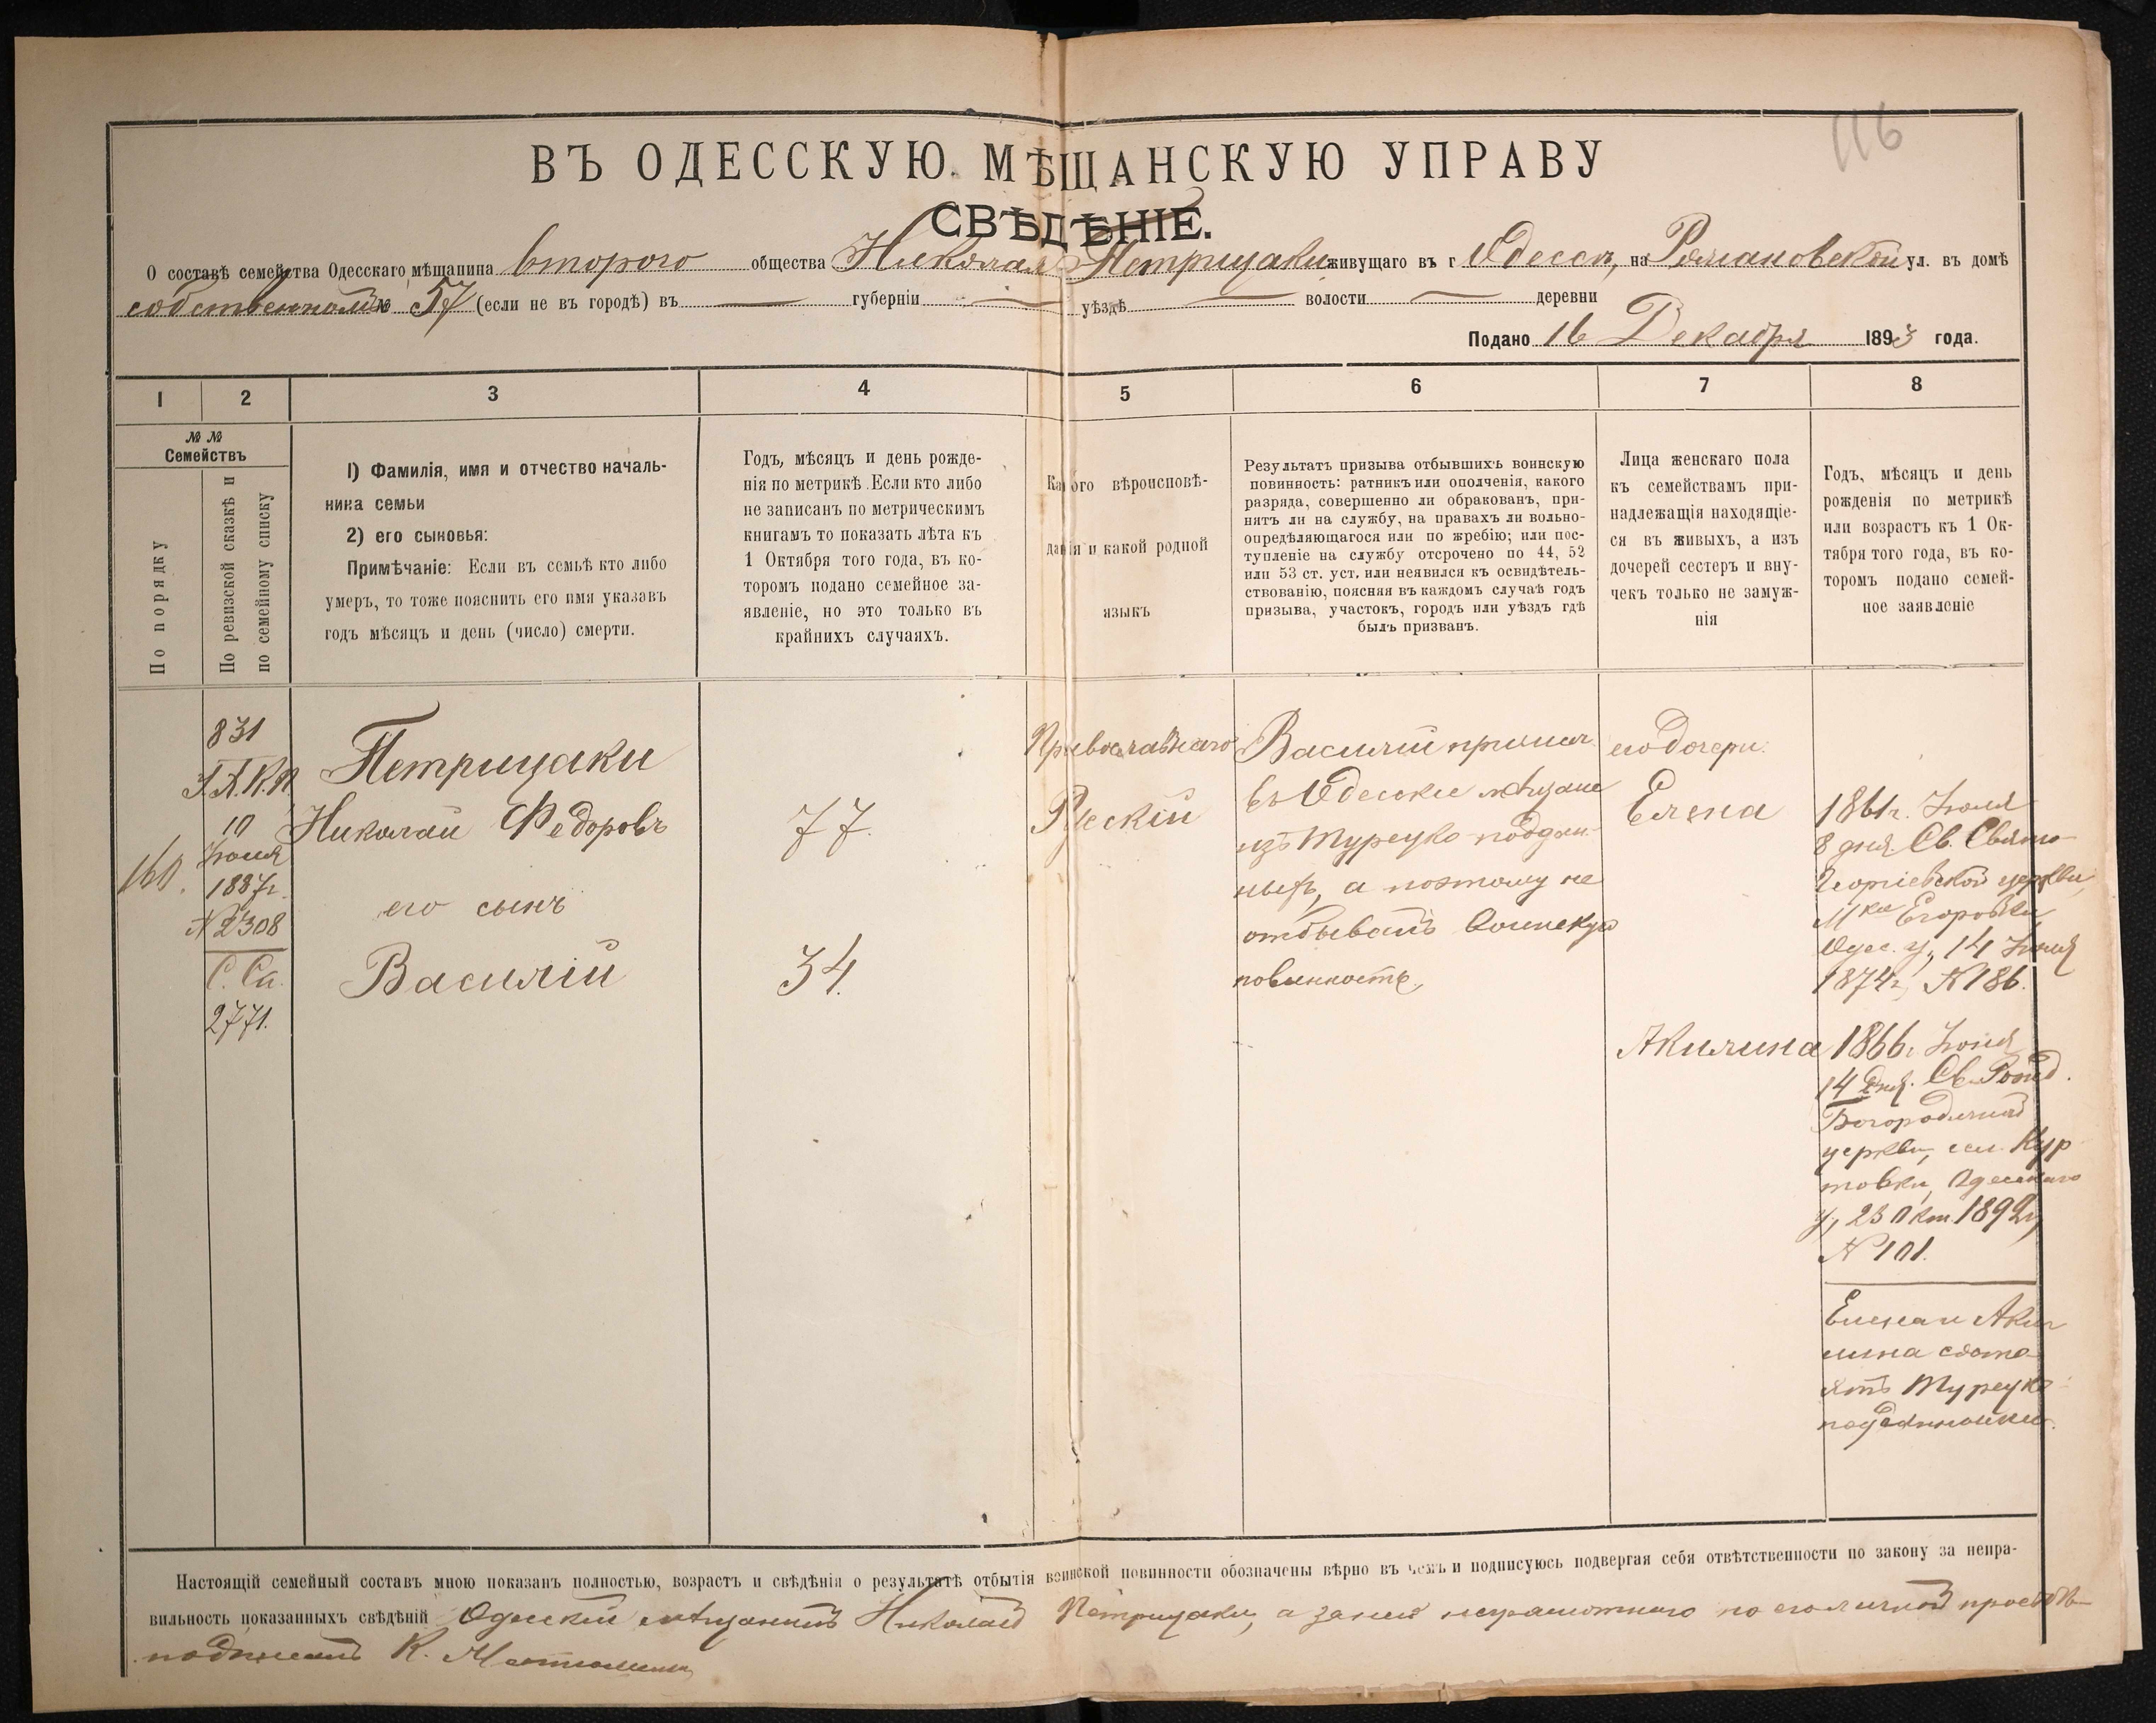 116
ВЪ ОДЕССКУЮ МѢЩАНСКУЮ УПРАВУ
СВѢДѢНІЕ.
О составѣ семейства Одесскаго мѣщанина второго общества Николая Петрицаки живущаго въ г Одессѣ, на Романовской ул. въ домѣ
собственномъ № 57 (если не въ городѣ) въ — губерніи — уѣздѣ — волости — деревни
Подано 16 Декабря 1893 года.
1 2 3 4 5 6 7 8
№ №
Семействъ
По порядку
По ревизской сказкѣ и
по семейному списку
1) Фамилія, имя и отчество началь-
ника семьи
2) его сыновья:
Примѣчаніе: Если въ семьѣ кто либо
умеръ, то тоже пояснить его имя указавъ
годъ мѣсяцъ и день (число) смерти.
Годъ, мѣсяцъ и день рожде-
нія по метрикѣ. Если кто либо
не записанъ по метрическимъ
книгамъ то показать лѣта къ
1 Октября того года, въ ко-
торомъ подано семейное за-
явленіе, но это только въ
крайнихъ случаяхъ.
Какого вѣроисповѣ-
данія и какой родной
языкъ
Результатъ призыва отбывшихъ воинскую
повинность: ратникъ или ополченія, какого
разряда, совершенно ли обракованъ, при-
нятъ ли на службу, на правахъ ли вольно-
опредѣляющагося или по жребію; или пос-
тупленіе на службу отсрочено по 44, 52
или 53 ст. уст. или неявился къ освидѣтель-
ствованію, поясняя въ каждомъ случаѣ годъ
призыва, участокъ, городъ или уѣздъ гдѣ
былъ призванъ.
Лица женскаго пола
къ семействамъ при-
надлежащія находящіе-
ся въ живыхъ, а изъ
дочерей сестеръ и вну-
чекъ только не замуж-
нія
Годъ, мѣсяцъ и день
рожденія по метрикѣ
или возрастъ къ 1 Ок-
тября того года, въ ко-
торомъ подано семей-
ное заявленіе
160.
831
10
Іюля
1887г.
№ 2308
С. Сп.
2771.
Петрицаки
Николай Федоровъ
его сынъ
Василій
77.
34.
Православнаго
Русскій
Василій причисл.
въ Одесскіе мѣщане
изъ Турецко-поддан-
ныхъ, а поэтому не
отбывалъ воинскую
повинность.
его дочери:
Елена
Акилина
1861г. Іюля
8 дня. Св. Свято-
Георгіевской церкви,
М-ка Егоровки,
Одес. у., 14 Іюля
1874г, № 186.
1866г. Іюня
14 дня. Св. Рожд.
Богородичной
церкви, сел. Кур
товки, Одесскаго
у, 23 Окт 1892г,
№ 101.
Елена и Аки
лина состо-
ятъ Турецко-
подданными.
Настоящій семейный составъ мною показанъ полностью, возрастъ и свѣдѣнія о результатѣ отбытія воинской повинности обозначены вѣрно въ чемъ и подписуюсь подвергая себя отвѣтственности по закону за непра-
вильность показанныхъ свѣдѣній Одесскій мѣщанинъ Николай Петрицаки, а за него неграмотнаго по его личной просьбѣ
подписалъ К.